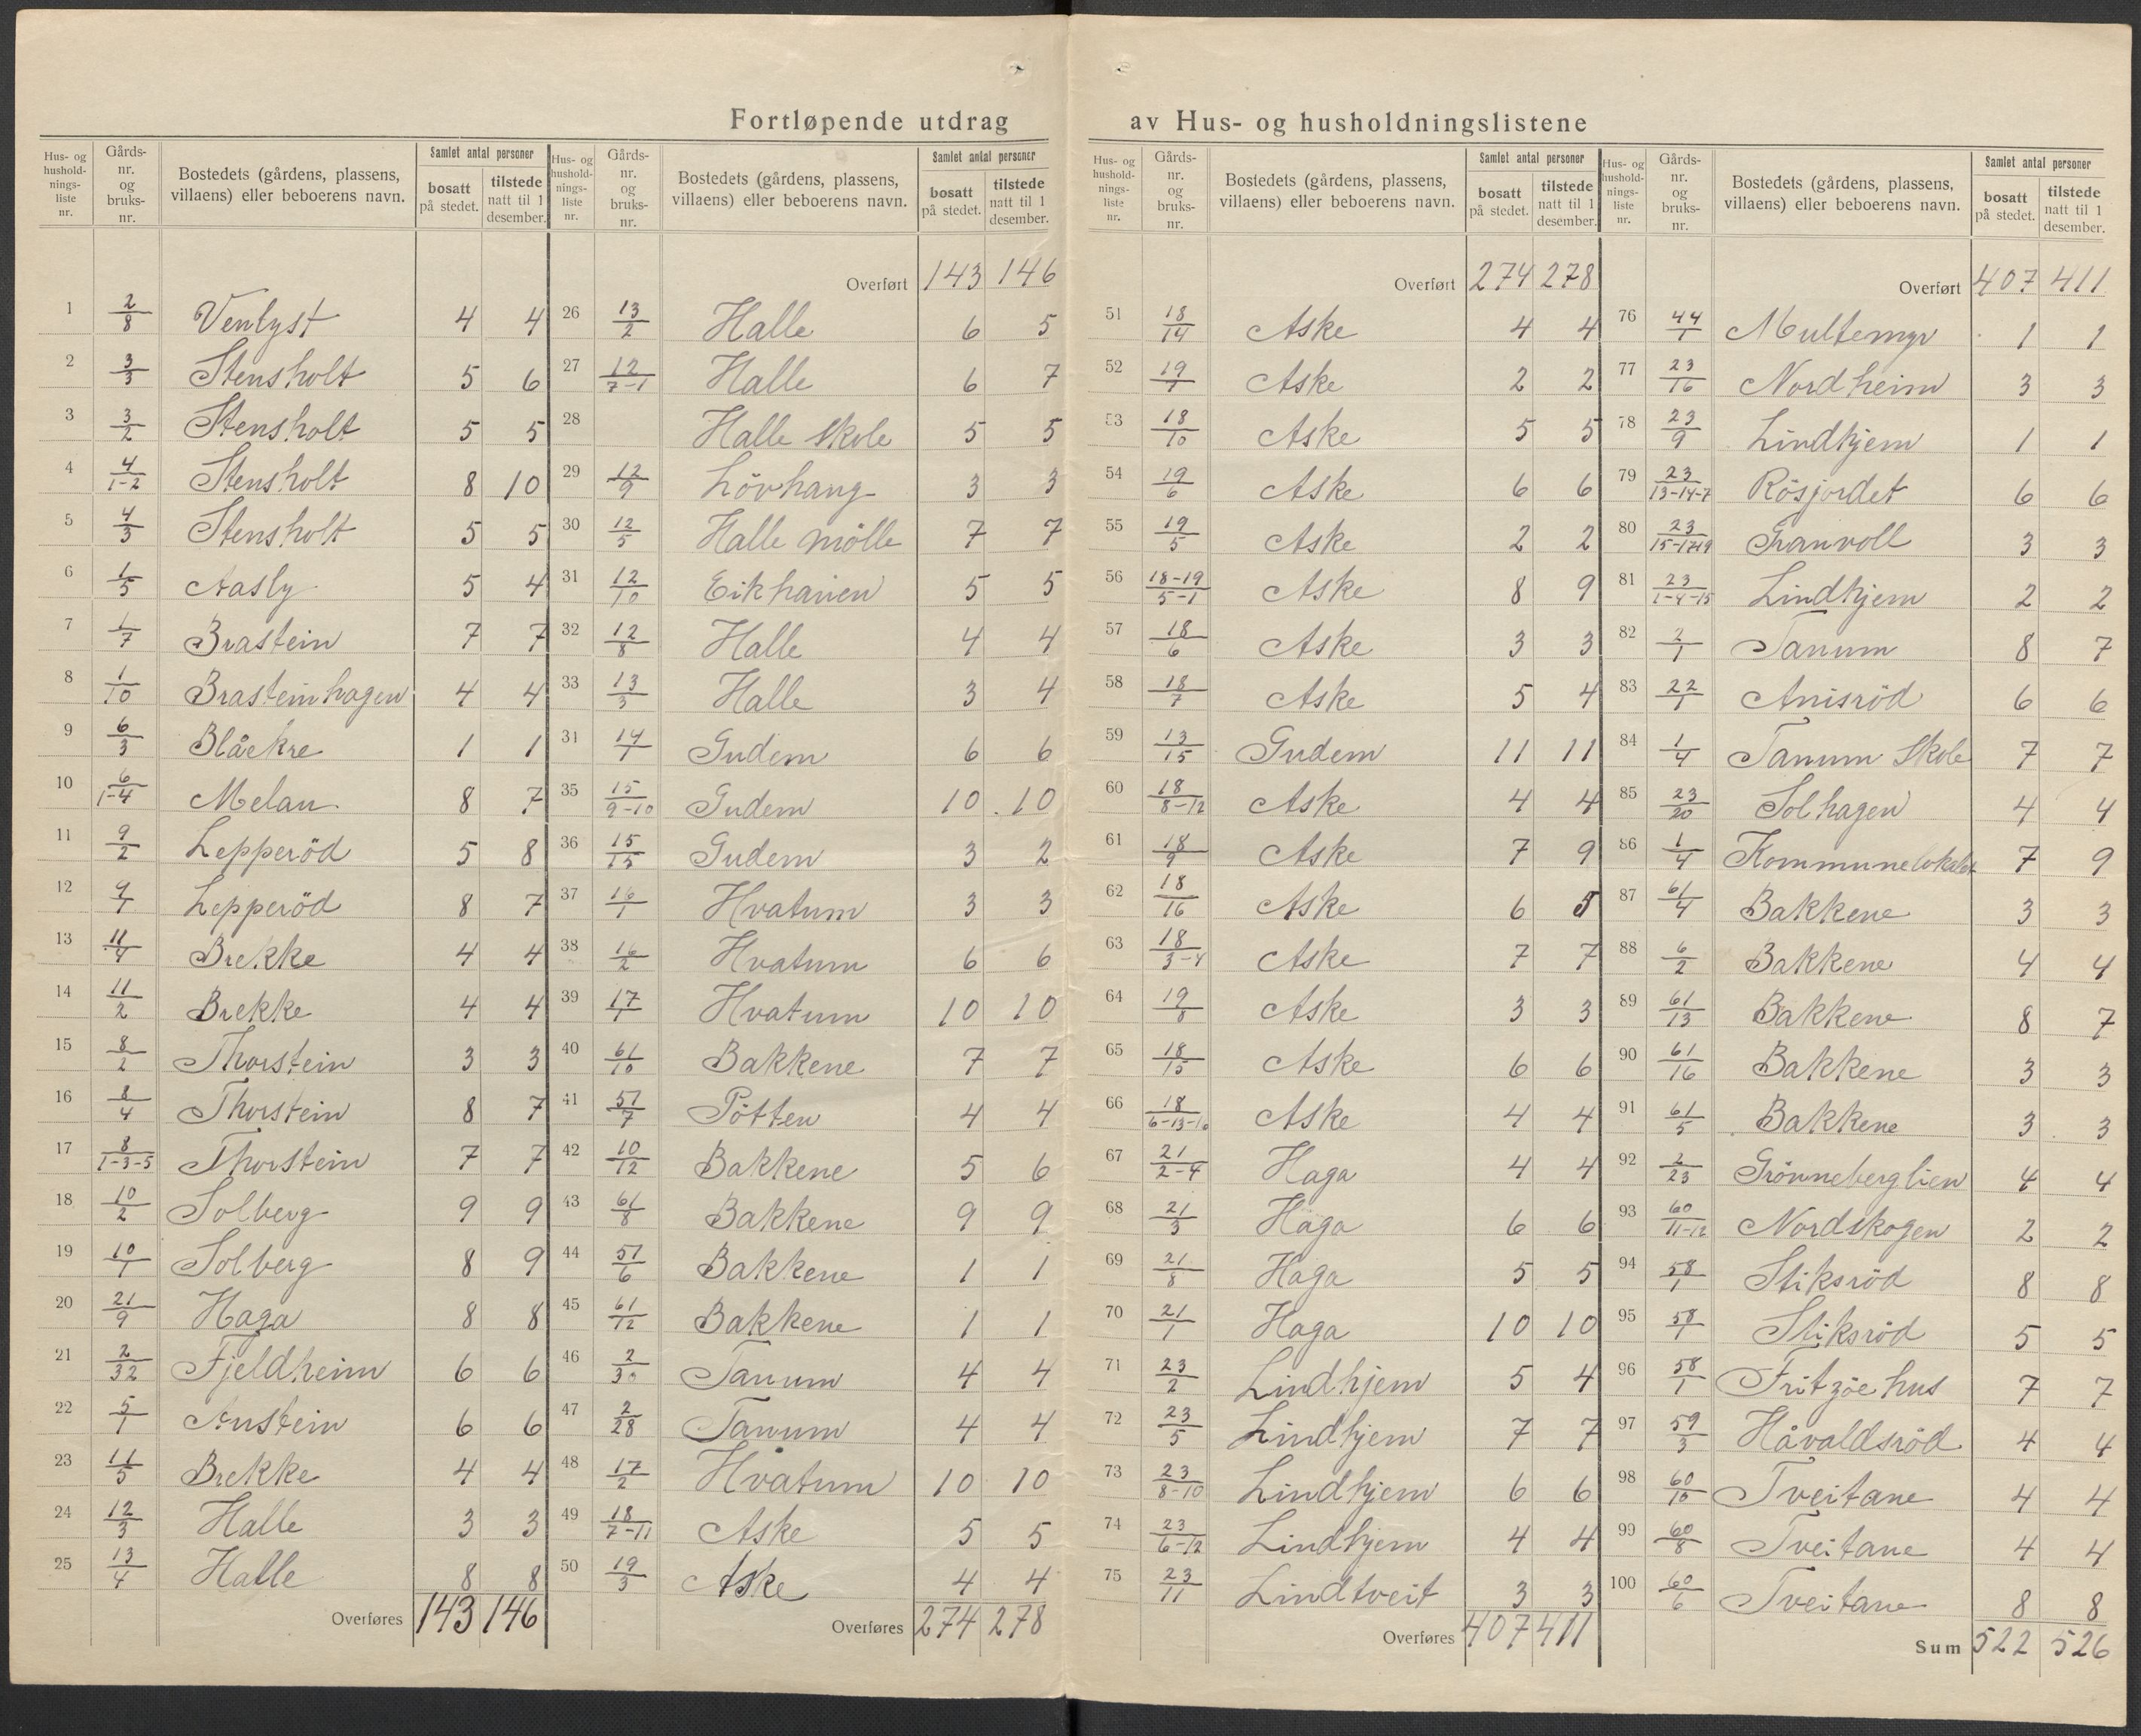 Fortløpende utdrag av Hus- og husholdningslistene
Hus- og husholdningsliste nr. | Gårds-nr. og bruks-nr. | Bostedets (gårdens, plassens, villaens) eller beboerens navn. | Samlet antal personer | bosatt på stedet. | tilstede natt til 1 desember.
1 2/8 Venlyst 4 4
2 3/3 Stensholt 5 6
3 3/2 Stensholt 5 5
4 4/1-2 Stensholt 8 10
5 4/3 Stensholt 5 5
6 1/5 Aasly 5 4
7 1/7 Brastein 7 7
8 1/10 Brasteinhagen 4 4
9 6/3 Blåekre 1 1
10 6/1-4 Melau 8 7
11 9/2 Lepperöd 5 8
12 9/1 Lepperöd 8 7
13 11/4 Brekke 4 4
14 11/2 Brekke 4 4
15 8/2 Thorstein 3 3
16 8/4 Thorstein 8 7
17 8/1-3-5 Thorstein 7 7
18 10/2 Solberg 9 9
19 10/1 Solberg 8 9
20 21/9 Haga 8 8
21 2/32 Fjeldheim 6 6
22 5/1 Austein 6 6
23 11/5 Brekke 4 4
24 12/3 Halle 3 3
25 13/4 Halle 8 8
Overføres 143 146
Hus- og husholdningsliste nr. | Gårds-nr. og bruks-nr. | Bostedets (gårdens, plassens, villaens) eller beboerens navn. | Samlet antal personer | bosatt på stedet. | tilstede natt til 1 desember.
Overført 143 146
26 13/2 Halle 6 5
27 12/7-1 Halle 6 7
28 Halle skole 5 5
29 12/9 Lövhaug 3 3
30 12/5 Halle mölle 7 7
31 12/10 Eikhauen 5 5
32 12/8 Halle 4 4
33 13/3 Halle 3 4
34 14/1 Gudem 6 6
35 15/9-10 Gudem 10 10
36 15/15 Gudem 3 2
37 16/1 Hvatum 3 3
38 16/2 Hvatum 6 6
39 17/1 Hvatum 10 10
40 61/10 Bakkene 7 7
41 57/7 Pötten 4 4
42 10/12 Bakkene 5 6
43 61/8 Bakkene 9 9
44 57/6 Bakkene 1 1
45 61/12 Bakkene 1 1
46 2/30 Tanum 4 4
47 2/28 Tanum 4 4
48 17/2 Hvatum 10 10
49 18/7-11 Aske 5 5
50 19/3 Aske 4 4
Overføres 274 278
Hus- og husholdningsliste nr. | Gårds-nr. og bruks-nr. | Bostedets (gårdens, plassens, villaens) eller beboerens navn. | Samlet antal personer | bosatt på stedet. | tilstede natt til 1 desember.
Overført 274 278
51 18/14 Aske 4 4
52 19/7 Aske 2 2
53 18/10 Aske 5 5
54 19/6 Aske 6 6
55 19/5 Aske 2 2
56 18-19/5-1 Aske 8 9
57 18/6 Aske 3 3
58 18/7 Aske 5 4
59 13/15 Gudem 11 11
60 18/8-12 Aske 4 4
61 18/9 Aske 7 9
62 18/16 Aske 6 5
63 18/3-4 Aske 7 7
64 19/8 Aske 3 3
65 18/15 Aske 6 6
66 18/6-13-16 Aske 4 4
67 21/2-4 Haga 4 4
68 21/3 Haga 6 6
69 21/8 Haga 5 5
70 21/1 Haga 10 10
71 23/2 Lindhjem 5 4
72 23/5 Lindhjem 7 7
73 23/8-10 Lindhjem 6 6
74 23/6-12 Lindhjem 4 4
75 23/11 Lindtveit 3 3
Overføres 407 411
Hus- og husholdningsliste nr. | Gårds-nr. og bruks-nr. | Bostedets (gårdens, plassens, villaens) eller beboerens navn. | Samlet antal personer | bosatt på stedet. | tilstede natt til 1 desember.
Overført 407 411
76 44/1 Multemyr 1 1
77 23/16 Nordheim 3 3
78 23/9 Lindhjem 1 1
79 23/13-14-7 Rösjordet 6 6
80 23 Granvoll 3 3
81 23/1-4-15 Lindhjem 2 2
82 2/1 Tanum 8 7
83 22/1 Anisröd 6 6
84 1/4 Tanum skole 7 7
85 23/20 Solhagen 4 4
86 1/4 Kommunelokalet 7 9
87 61/4 Bakkene 3 3
88 6/2 Bakkene 4 4
89 61/13 Bakkene 8 7
90 61/16 Bakkene 3 3
91 61/5 Bakkene 3 3
92 2/23 Grönneberglien 4 4
93 60/11-12 Nordskogen 2 2
94 58/1 Stiksröd 8 8
95 58/1 Stiksröd 5 5
96 58/1 Fritzöehus 7 7
97 59/3 Håvaldsröd 4 4
98 60/10 Tveitane 4 4
99 60/8 Tveitane 4 4
100 60/6 Tveitane 8 8
Sum 522 526